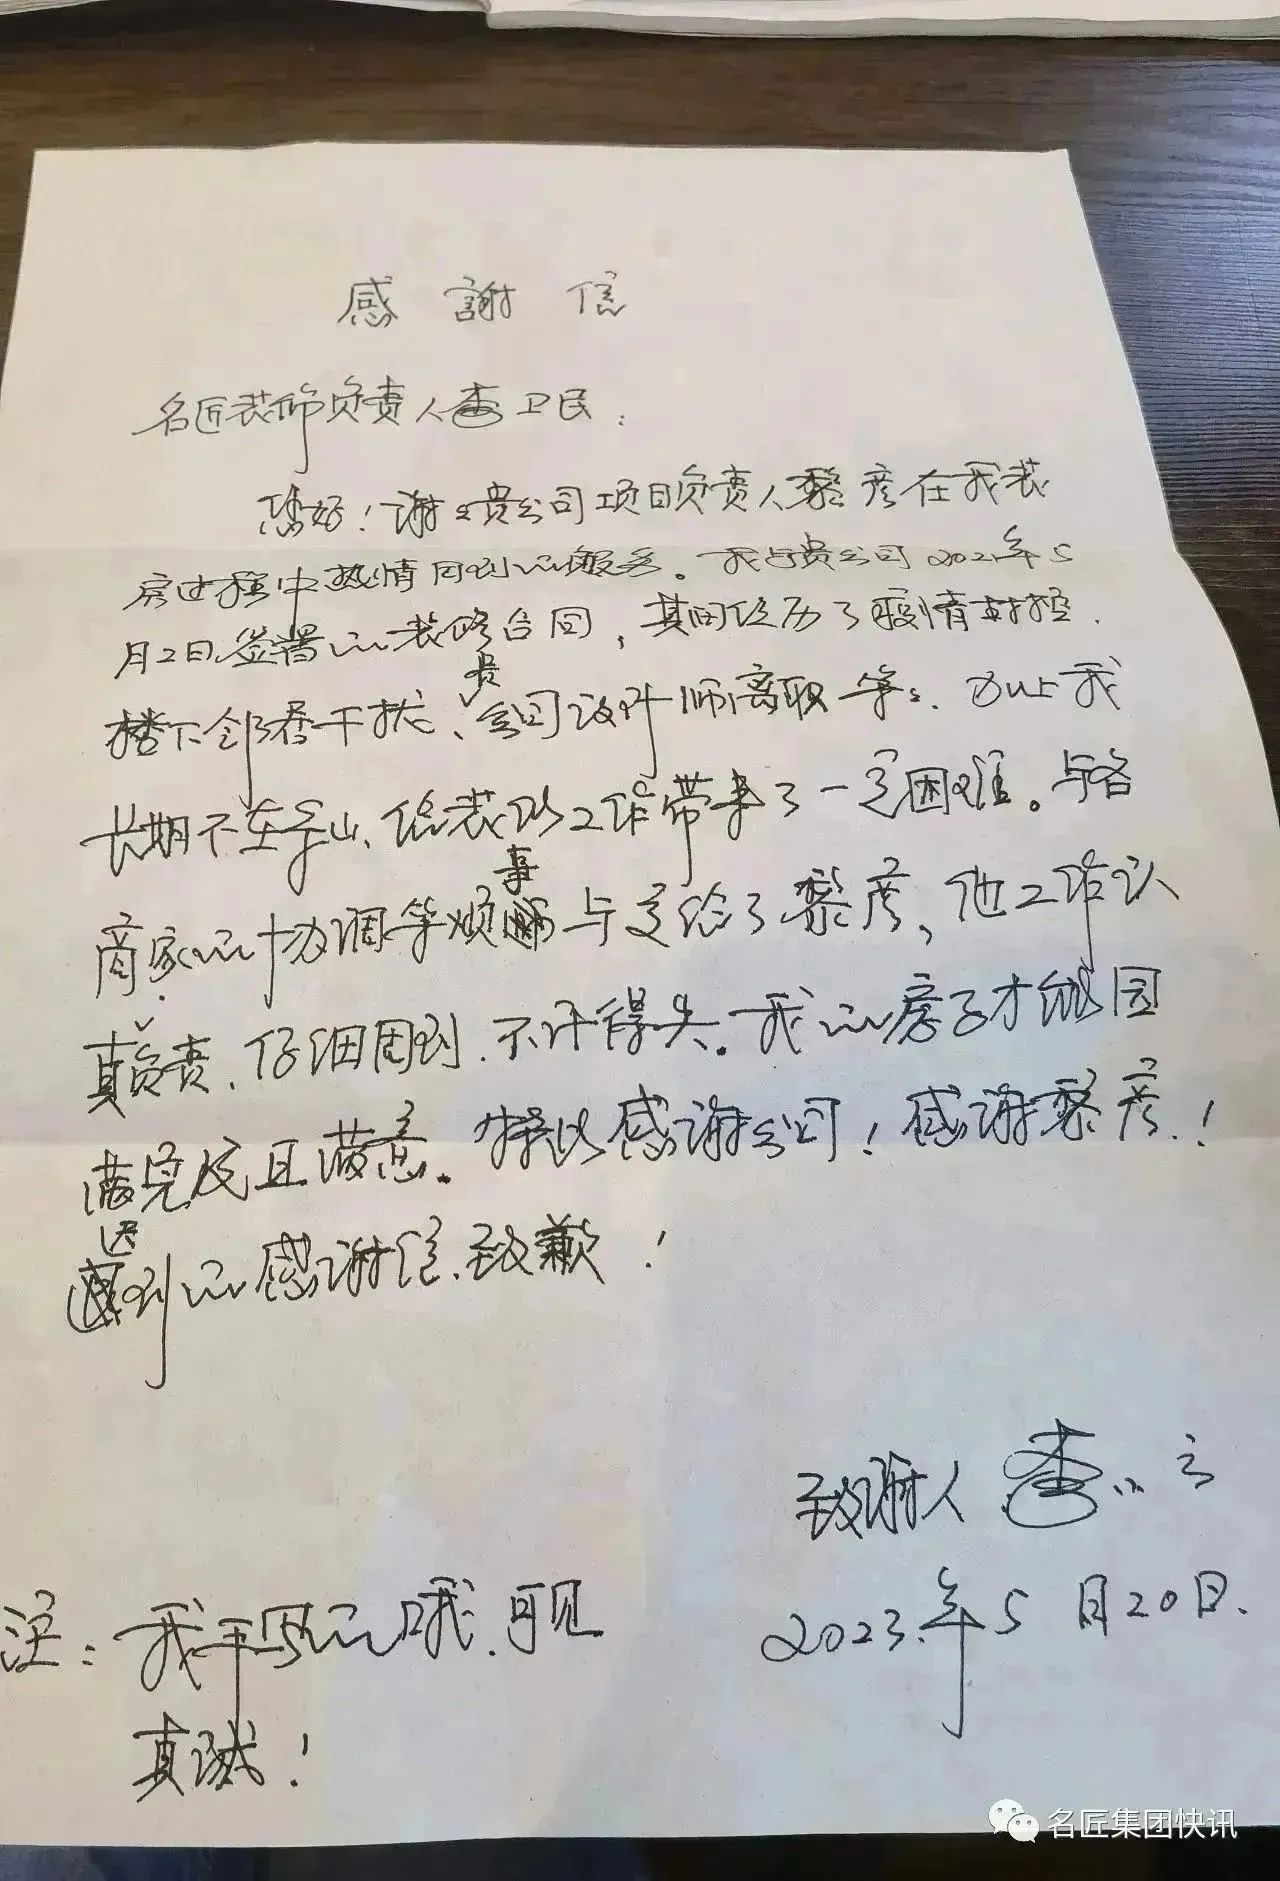 感謝信
名匠装饰负责人李卫民:
您好!谢谢贵公司项目负责人黎彦在我装
房过程中热情周到的服务。我与贵公司2021年5
月2日签署的装修合同,其间经历了疫情封控、
楼下邻居干扰、贵公司设计师离职等等、加上我
长期不在乐山、给装修工作带来了一定困难。与各
商家的协调等烦事与交给了黎彦,他工作认
真负责、仔细周到、不计得失。我的房子才能园
满完成且满意。特此感谢公司!感谢黎彦!
迟到的感谢信、致歉!
致谢人 李
2023年5月20日.
注:我手写的哦、可见
真诚!
名匠集团快讯